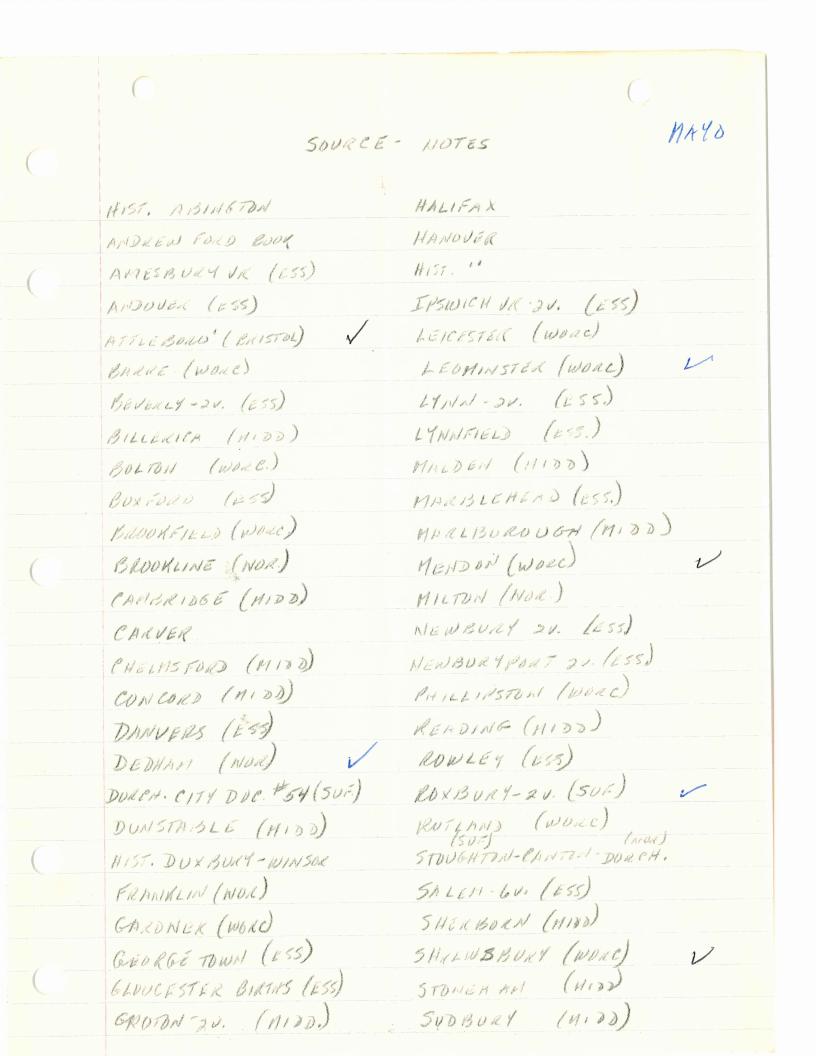 MAYO
SOURCE - NOTES
HIST. ABINGTON
ANDREW FORD BOOK
AMESBURY VR (ESS)
ANDOVER (ESS)
ATTLEBORO' (BRISTOL) ✓
BARRE (WORC)
BEVERLY - 2V. (ESS)
BILLERICA (MIDD)
BOLTON (WORC.)
BOXFORD (ESS)
BROOKFIELD (WORC)
BROOKLINE (NOR.)
CAMBRIDGE (MIDD)
CARVER
CHELMSFORD (MIDD)
CONCORD (MIDD)
DANVERS (ESS)
DEDHAM (NOR) ✓
DORCH. CITY DOC. #54 (SUF.)
DUNSTABLE (MIDD)
HIST. DUXBURY - WINSOR
FRANKLIN (NOR)
GARDNER (WORC)
GEORGETOWN (ESS)
GLOUCESTER BIRTHS (ESS)
GROTON - 2V. (MIDD.)
HALIFAX
HANOVER
HIST. "
IPSWICH VR - 2V. (ESS)
LEICESTER (WORC)
LEOMINSTER (WORC) ✓
LYNN - 2V. (ESS.)
LYNNFIELD (ESS.)
MALDEN (MIDD)
MARBLEHEAD (ESS.)
MARLBUROUGH (MIDD)
MENDON (WORC) ✓
MILTON (NOR.)
NEWBURY 2V. (ESS)
NEWBURYPORT 2V. (ESS.)
PHILLIPSTON (WORC)
READING (MIDD)
ROWLEY (ESS)
ROXBURY - 2V. (SUF) ✓
RUTLAND (WORC)
(SUF) (NOR)
STOUGHTON - CANTON - DORCH.
SALEM - 6V. (ESS)
SHERBORN (MIDD)
SHREWSBURY (WORC) ✓
STONEHAM (MIDD)
SUDBURY (MIDD)